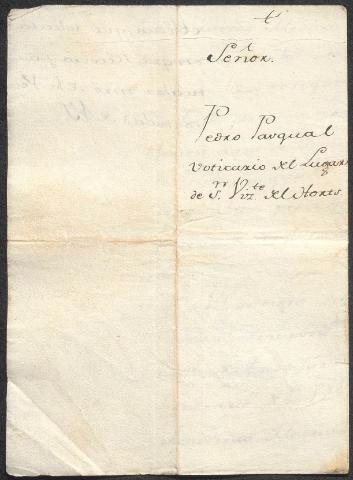 +
Señor.
Pedro Pasqual
Voticario del Lugar
de Sn. Vizte del Horts